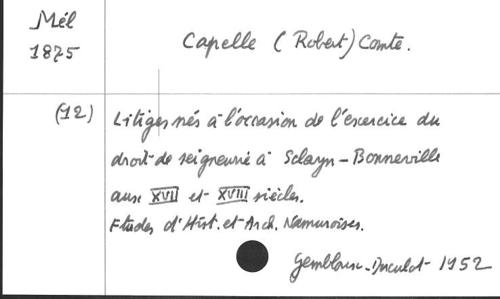 Mél
1875
Capelle (Robert) Comte.
(12)
Litiges nés à l'occasion de l'exercice du
droit de seigneurie à Sclayn-Bonneville
aux XVII et XVIII siècles.
Etudes d'Hist. et Arch. Namuroises.
Gembloux-Duculot-1952